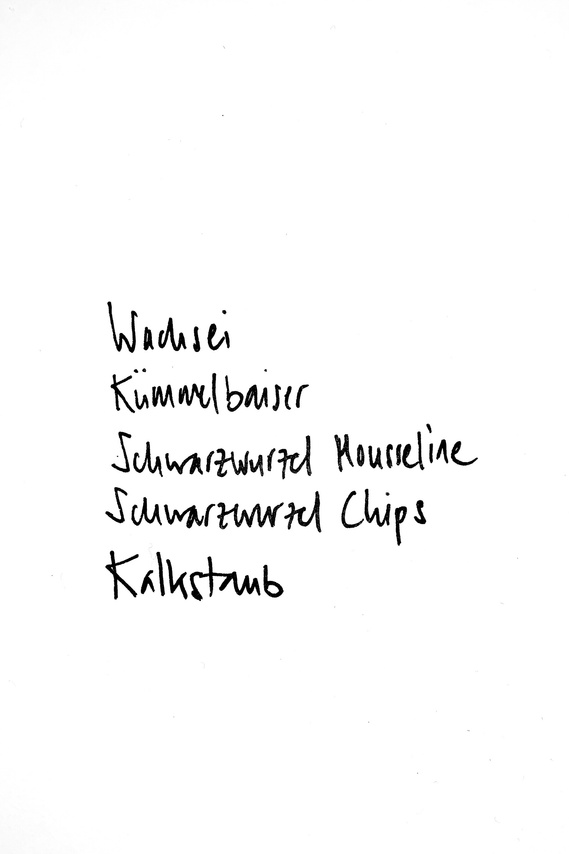 Wachsei
Kümmelbaiser
Schwarzwurzel Mousseline
Schwarzwurzel Chips
Kalkstaub